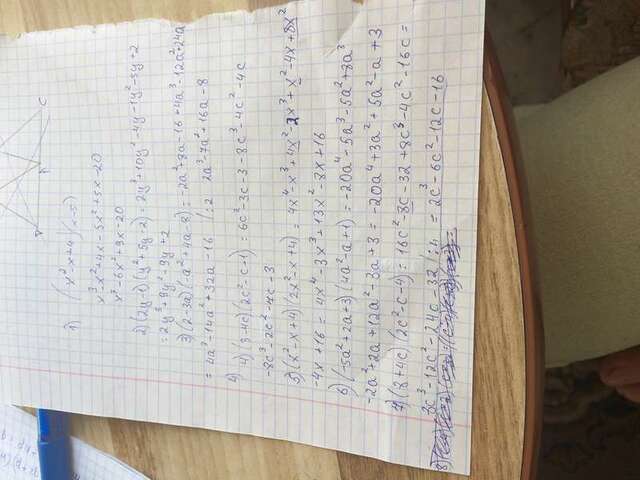 B A C
1) (x²-x+4)(x-5)
x³-x²+4x-5x²+5x-20
x³-6x²+9x-20
2) (2y-1)(y²+5y-2) = 2y³+10y²-4y-1y²-5y+2
= 2y³+9y²-9y+2
3) (2-3a)(-a²+4a-8) = -2a²+8a-16+4a³-12a²+24a
= 4a³-14a²+32a-16 /:2 2a³-7a²+16a-8
4)
4) (3-4c)(2c²-c+1) = 6c³-3c-3-8c³-4c²-4c
-8c³-2c²-7c-3
5) (x²-x+4)(2x²-x+4) = 4x⁴-x³+4x²-2x³+x²-4x+8x²
-4x+16 = 4x⁴-3x³+13x²-8x+16
6) (-5a²+2a+3)(4a²-a+1) = -20a⁴-5a³-5a²+8a³
-2a²+2a+12a²-3a+3 = -20a⁴+3a³+5a²-a+3
7) (8+4c)(2c²-c-4) = 16c²-8c-32+8c³-4c²-16c =
8c³-12c²-24c-32 /:4 = 2c³-6c²-12c-16
8)